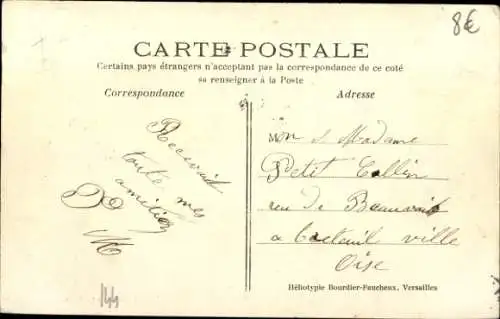 8€
CARTE POSTALE
Certains pays étrangers n'acceptant pas la correspondance de ce coté
sa renseigner à la Poste
Correspondance
Adresse
Recevait
toute mes
amitiés
P M
144
Mon s. Madame
Petit Collin
rue de Beauvais
a Creteuil ville
Oise
Héliotypie Bourdier-Faucheux, Versailles